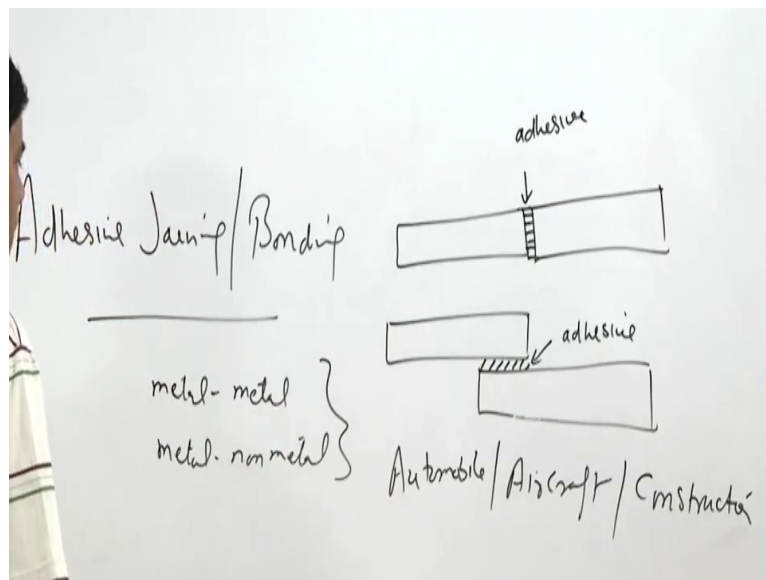 adhesive
Adhesive Joining/Bonding
adhesive
metal-metal
metal-nonmetal
Automobile/Aircraft/Construction